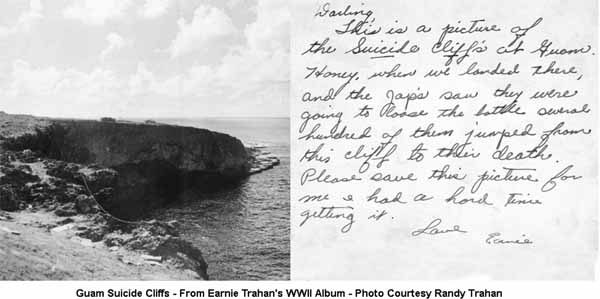 Darling,
This is a picture of
the Suicide Cliff's at Guam.
Honey, when we landed there,
and the Jap's saw they were
going to loose the battle sveral
hundred of them jumped from
this cliff to their death.
Please save this picture for
me I had a hard time
getting it.
Love
Earnie
Guam Suicide Cliffs - From Earnie Trahan's WWII Album - Photo Courtesy Randy Trahan